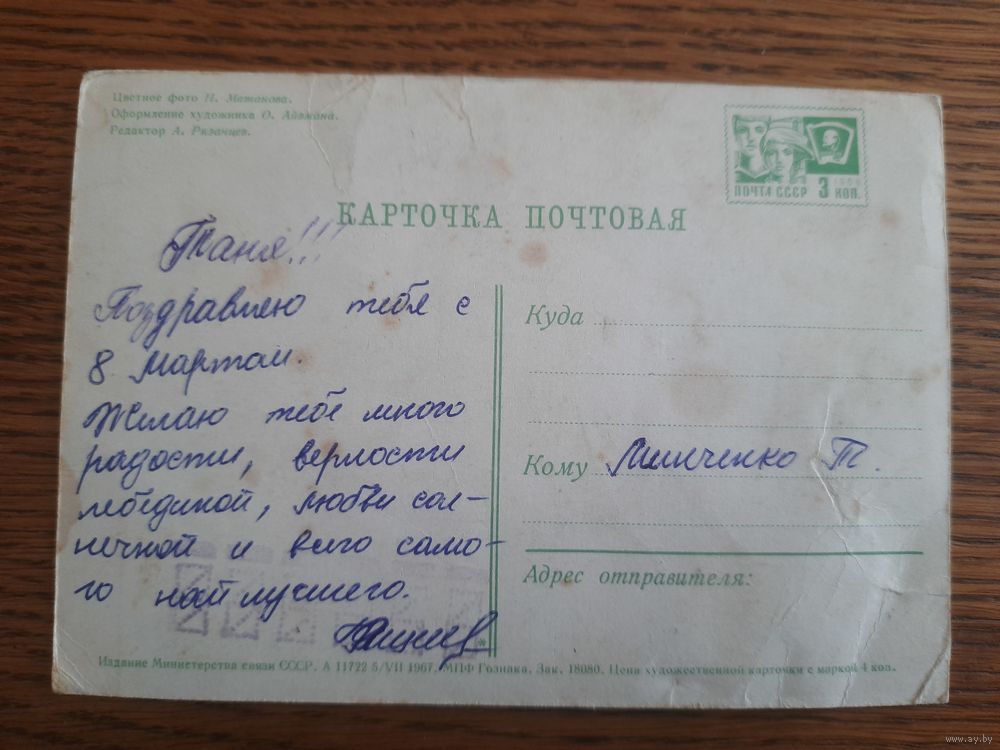 Цветное фото Н. Матанова.
Оформление художника О. Айзмана.
Редактор А. Рязанцев.
ПОЧТА СССР 3 КОП.
КАРТОЧКА ПОЧТОВАЯ
Таня!!!
Поздравляю тебя с
8 Мартом.
Желаю тебе много
радости, верности
лебединой, любви сол-
нечной и всего само-
го найлучшего.
Куда
Кому Минченко Т.
Адрес отправителя:
Издание Министерства связи СССР. А 11722 5/VII 1967. МПФ Гознака. Зак. 18080. Цена художественной карточки с маркой 4 коп.
www.ay.by